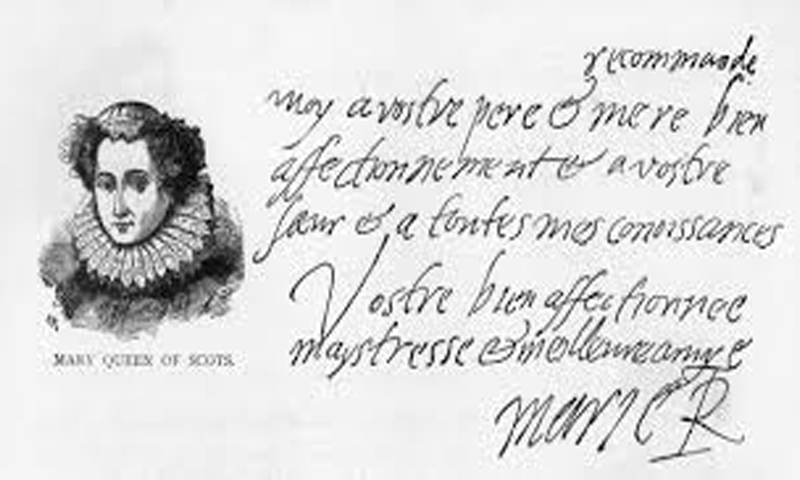 recommandé
moy a vostre pere & mere bien
affectionnement & a vostre
sœur & a toutes mes conoissances
Vostre bien affectionnee
maystresse & meilleure amye
Marie R
MARY QUEEN OF SCOTS.